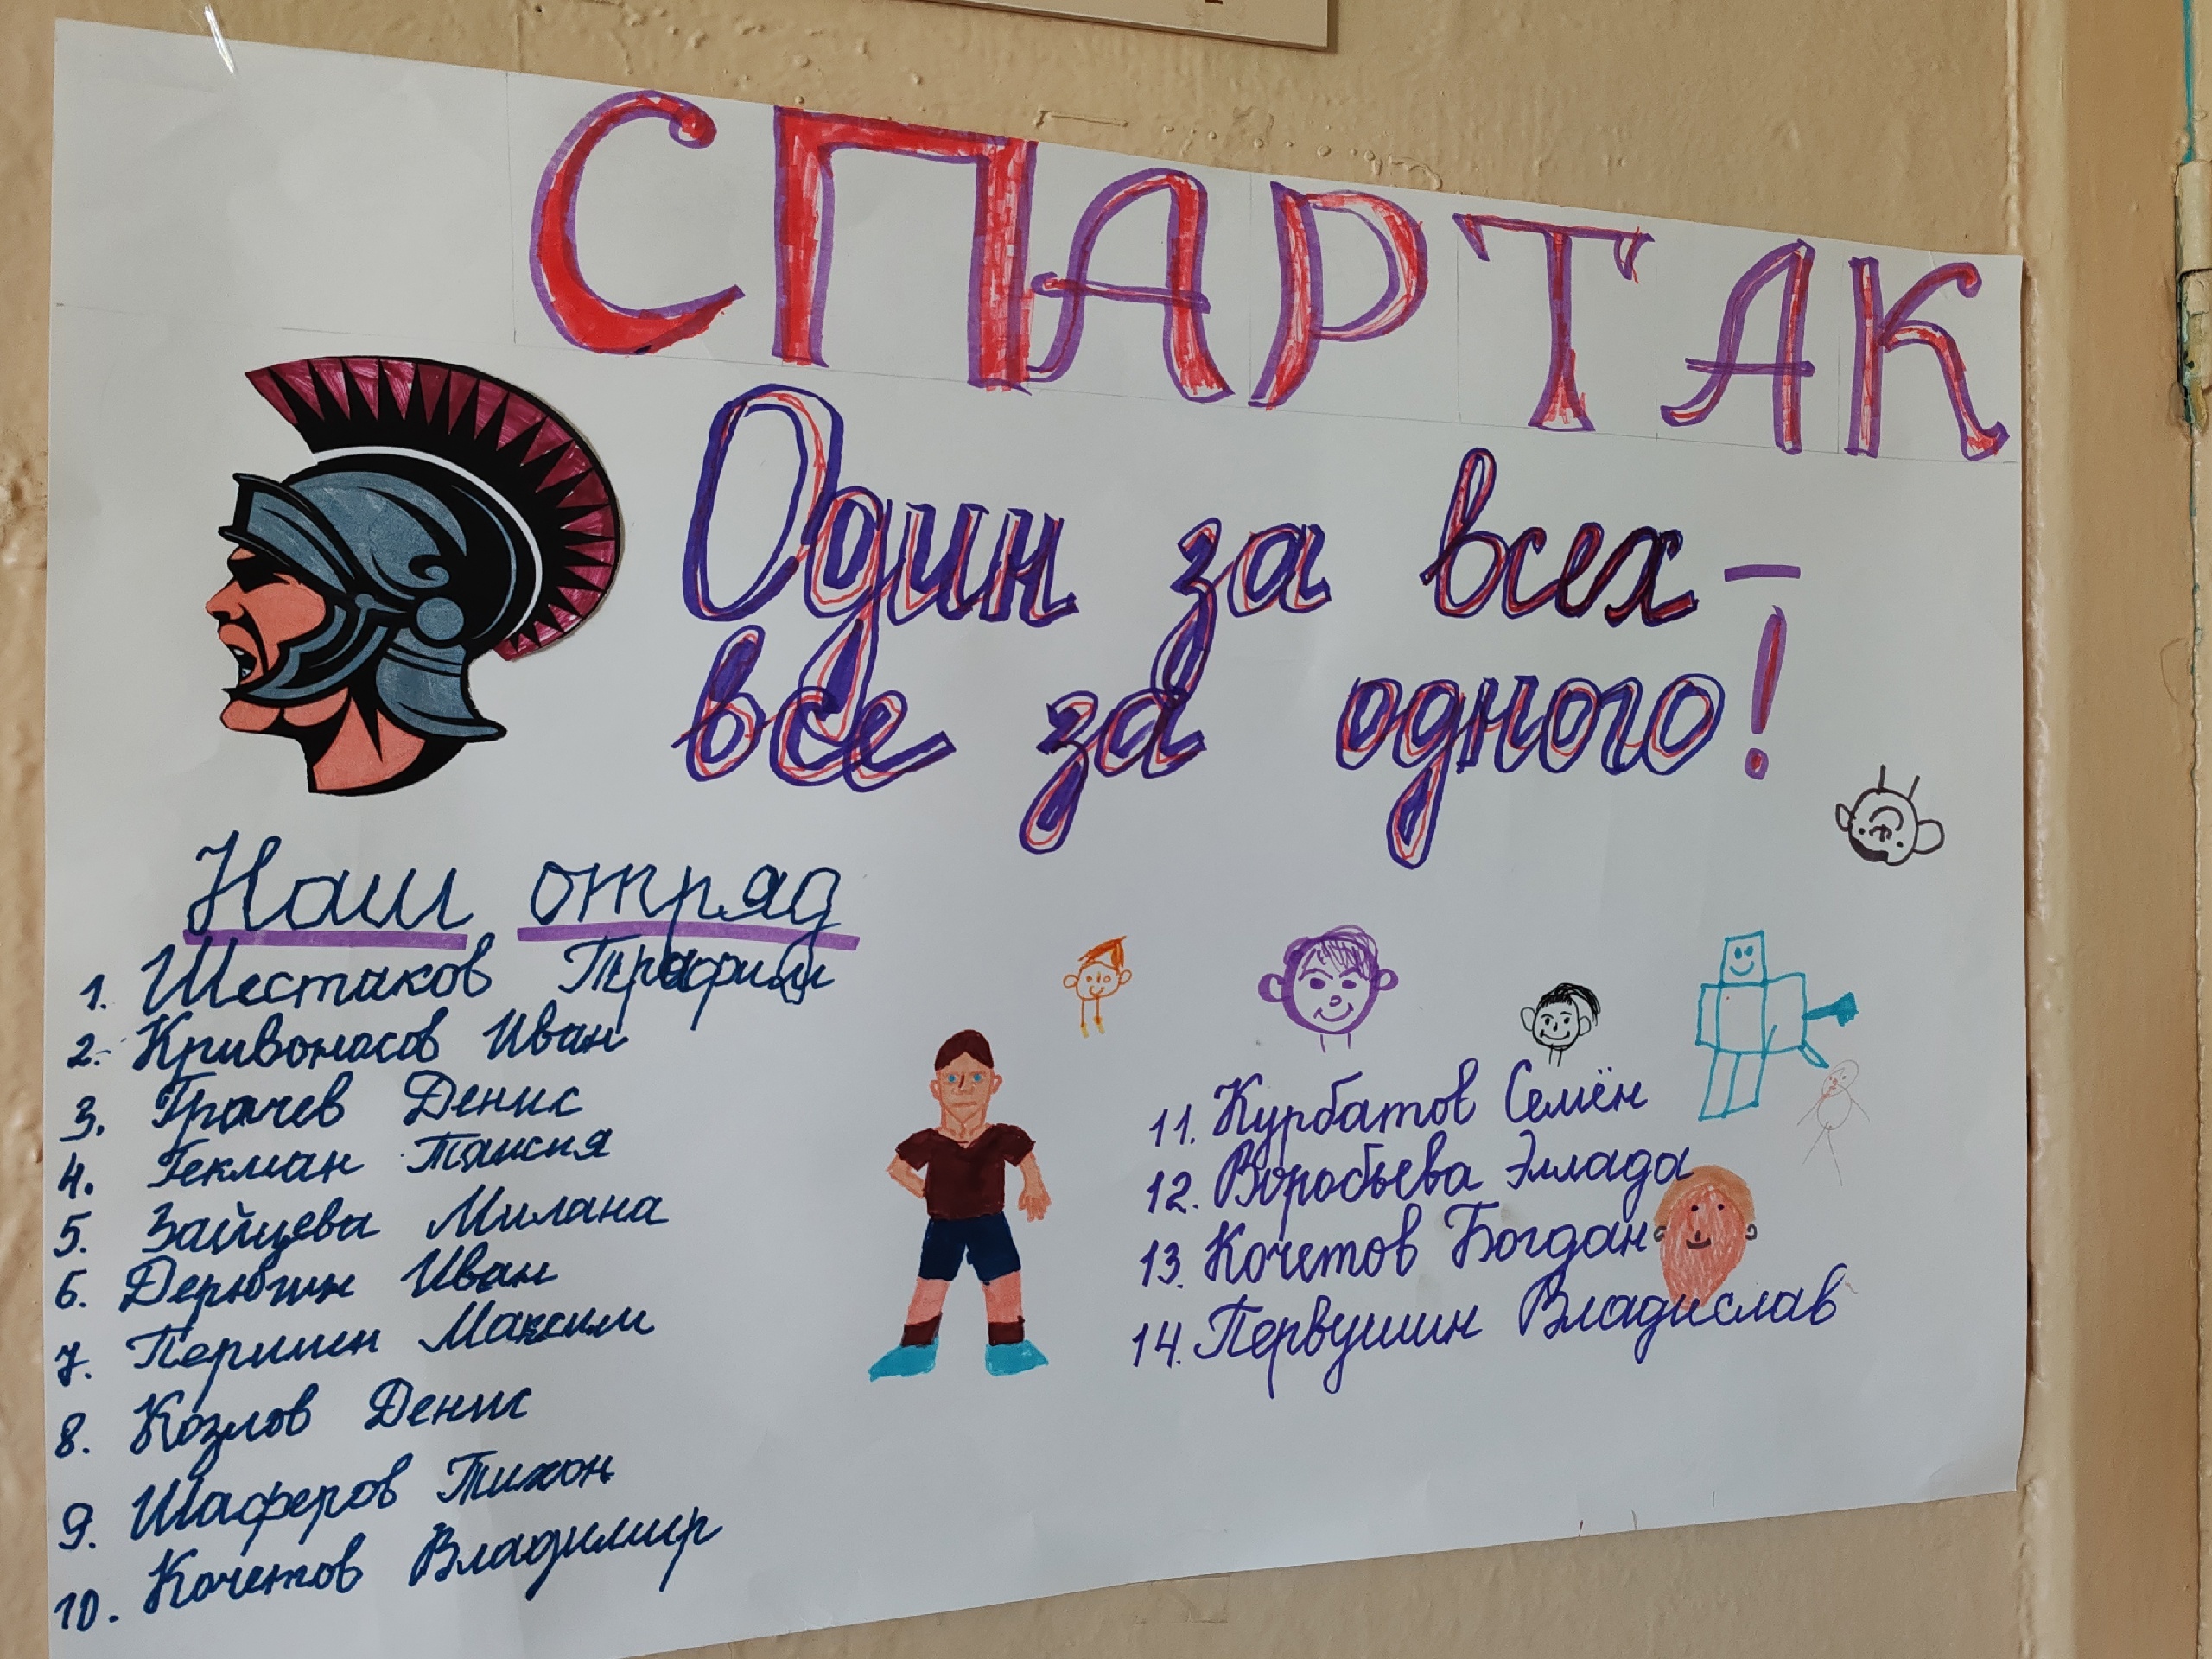 СПАРТАК
Один за всех –
все за одного!
Наш отряд
1. Шестаков Трафим
2. Кривоносов Иван
3. Грачев Денис
4. Гекман Таисия
5. Зайцева Милана
6. Дерюгин Иван
7. Пермин Максим
8. Козлов Денис
9. Шаферов Тихон
10. Кочетов Владимир
11. Курбатов Семён
12. Воробьева Эллада
13. Кочетов Богдан
14. Первушин Владислав